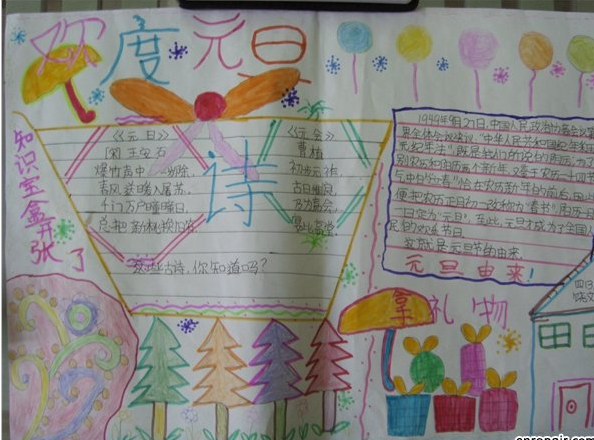 欢度元旦
知识宝盒开张了
《元日》
[宋]王安石
爆竹声中一岁除,
春风送暖入屠苏。
千门万户曈曈日,
总把新桃换旧符
《元会》
曹植
初步元祚,
古日惟良,
乃为嘉会,
宴此高堂
诗
这些古诗,你知道吗?
1949年9月27日,中国人民政治协商会议第
届全体会议决议:"中华人民共和国纪年采用
世纪年法",既是我们所说的阳历,为了
别农历和阳历两个新年,又鉴于农历二十四节
气中的"立春"恰在农历新年的前后,因此
便把农历正月初一改称为"春节",阳历一月
一日定为"元旦",在此,元旦才成为了全国人
民的欢乐节日。
这就是元旦节的由来。
元旦由来!
拿礼物